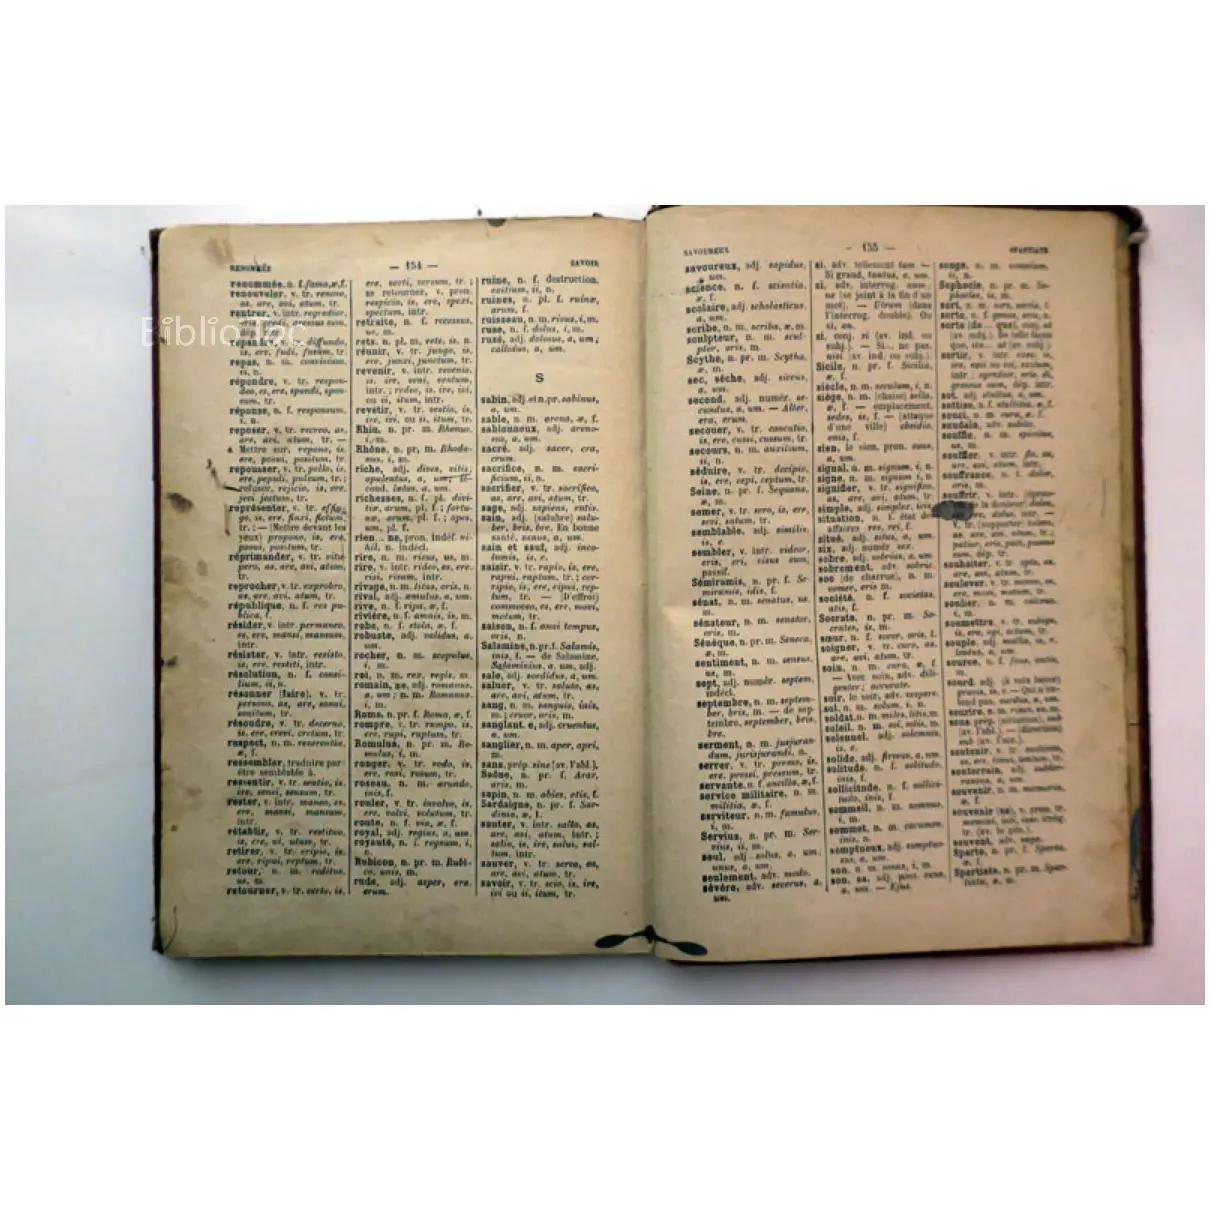 RENOMMÉE
— 154 —
SAVOIR
renommée, n. f. fama, æ, f.
renouveler, v. tr. renovo,
as, are, avi, atum, tr.
rentrer, v. intr. regredior,
repas, n. m. convivium,
ii, n.
répondre, v. tr. respon-
deo, es, ere, spondi, spon-
sum, tr.
réponse, n. f. responsum,
i, n.
reposer, v. tr. recreo, as,
are, avi, atum, tr. —
Mettre sur, repono, is,
ere, posui, positum, tr.
repousser, v. tr. pello, is,
ere, pepuli, pulsum, tr. ;
refuser, rejicio, is, ere,
jeci, jectum, tr.
représenter, v. tr. effin-
go, is, ere, finxi, fictum,
tr. ; — (Mettre devant les
yeux) propono, is, ere,
posui, positum, tr.
réprimander, v. tr. vitu-
pero, as, are, avi, atum,
tr.
reprocher, v. tr. exprobro,
as, are, avi, atum, tr.
république, n. f. res pu-
blica, f.
résider, v. intr. permaneo,
es, ere, mansi, mansum,
intr.
résister, v. intr. resisto,
is, ere, restiti, intr.
résolution, n. f. consi-
lium, ii, n.
résonner (faire), v. tr.
persono, as, are, sonui,
sonitum, tr.
résoudre, v. tr. decerno,
is, ere, crevi, cretum, tr.
respect, n. m. reverentia,
æ, f.
ressembler, traduire par :
être semblable à.
ressentir, v. tr. sentio, is,
ire, sensi, sensum, tr.
rester, v. intr. maneo, es,
ere, mansi, mansum,
intr.
rétablir, v. tr. restituo,
is, ere, ui, utum, tr.
retirer, v. tr. eripio, is,
ere, ripui, reptum, tr.
retour, n. m. reditus,
us, m.
retourner, v. tr. verto, is,
ere, verti, versum, tr. ;
se retourner, v. pron.
respicio, is, ere, spexi,
spectum, intr.
retraite, n. f. recessus,
us, m.
rets, n. pl. m. rete, is, n.
réunir, v. tr. jungo, is,
ere, junxi, junctum, tr.
revenir, v. intr. revenio,
is, ire, veni, ventum,
intr. ; redeo, is, ire, ivi
ou ii, itum, intr.
revêtir, v. tr. vestio, is,
ire, ivi, ou ii, itum, tr.
Rhin, n. pr. m. Rhenus,
i, m.
Rhône, n. pr. m. Rhoda-
nus, i, m.
riche, adj. dives, vitis ;
opulentus, a, um ;
richesses, n. f. pl. divi-
tiæ, arum, pl. f. ; fortu-
næ, arum, pl. f. ; opes,
um, pl. f.
rien... ne, pron. indéf. ni-
hil, n. indécl.
rire, n. m. risus, us, m.
rire, v. intr. rideo, es, ere,
risi, risum, intr.
rivage, n. m. litus, oris, n.
rival, adj. æmulus, a, um.
rive, n. f. ripa, æ, f.
rivière, n. f. amnis, is, m.
robe, n. f. stola, æ, f.
robuste, adj. validus, a,
um.
rocher, n. m. scopulus,
i, m.
roi, n. m. rex, regis, m.
romain, ne, adj. romanus,
a, um ; n. m. Romanus,
i, m.
Rome, n. pr. f. Roma, æ, f.
rompre, v. tr. rumpo, is,
ere, rupi, ruptum, tr.
Romulus, n. pr. m. Ro-
mulus, i, m.
ronger, v. tr. rodo, is,
ere, rosi, rosum, tr.
roseau, n. m. arundo,
inis, f.
rouler, v. tr. involvo, is,
ere, volvi, volutum, tr.
route, n. f. via, æ, f.
royal, adj. regius, a, um.
royauté, n. f. regnum, i,
n.
Rubicon, n. pr. m. Rubi-
co, onis, m.
rude, adj. asper, era,
erum.
ruine, n. f. destruction,
exitium, ii, n.
ruines, n. pl. f. ruinæ,
arum, f.
ruisseau, n. m. rivus, i, m.
ruse, n. f. dolus, i, m.
rusé, adj. dolosus, a, um ;
callidus, a, um.
S
sabin, adj. et n. pr. sabinus,
a, um.
sable, n. m. arena, æ, f.
sablonneux, adj. areno-
sus, a, um.
sacré, adj. sacer, cra,
crum.
sacrifice, n. m. sacri-
ficium, ii, n.
sacrifier, v. tr. sacrifico,
as, are, avi, atum, tr.
sage, adj. sapiens, entis.
sain, adj. (salubre) salu-
ber, bris, bre. En bonne
santé, sanus, a, um.
sain et sauf, adj. inco-
lumis, is, e.
saisir, v. tr. rapio, is, ere,
rapui, raptum, tr. ; cor-
ripio, is, ere, ripui, rep-
tum, tr. — (D'effroi)
commoveo, es, ere, movi,
motum, tr.
saison, n. f. anni tempus,
oris, n.
Salamine, n. pr. f. Salamis,
inis, f. — de Salamine,
Salaminius, a, um, adj.
sale, adj. sordidus, a, um.
saluer, v. tr. saluto, as,
are, avi, atum, tr.
sang, n. m. sanguis, inis,
m. ; cruor, oris, m.
sanglant, e, adj. cruentus,
a, um.
sanglier, n. m. aper, apri,
m.
sans, prép. sine (av. l'abl.).
Saône, n. pr. f. Arar,
aris, m.
sapin, n. m. abies, etis, f.
Sardaigne, n. pr. f. Sar-
dinia, æ, f.
sauter, v. intr. salto, as,
are, avi, atum, intr. ;
salio, is, ire, salui, sal-
tum, intr.
sauver, v. tr. servo, as,
are, avi, atum, tr.
savoir, v. tr. scio, is, ire,
ivi ou ii, itum, tr.
SAVOUREUX
— 155 —
SPARTIATE
savoureux, adj. sapidus,
a, um.
science, n. f. scientia,
æ, f.
scolaire, adj. scholasticus,
a, um.
scribe, n. m. scriba, æ, m.
sculpteur, n. m. sculp-
ptor, oris, m.
Scythe, n. pr. m. Scytha,
æ, m.
sec, sèche, adj. siccus,
a, um.
second, adj. numér. se-
cundus, a, um. — Alter,
era, erum.
secouer, v. tr. concutio,
is, ere, cussi, cussum, tr.
secours, n. m. auxilium,
ii, n.
séduire, v. tr. decipio,
is, ere, cepi, ceptum, tr.
Seine, n. pr. f. Sequana,
æ, m.
semer, v. tr. sero, is, ere,
sevi, satum, tr.
semblable, adj. similis,
is, e.
sembler, v. intr. videor,
eris, eri, visus sum,
passif.
Sémiramis, n. pr. f. Se-
miramis, idis, f.
sénat, n. m. senatus, us,
m.
sénateur, n. m. senator,
oris, m.
Sénèque, n. pr. m. Seneca,
æ, m.
sentiment, n. m. sensus,
us, m.
sept, adj. numér. septem,
indécl.
septembre, n. m. septem-
ber, bris, m. — de sep-
tembre, september, bris,
bre.
serment, n. m. jusjuran-
dum, jurisjurandi, n.
serrer, v. tr. premo, is,
ere, pressi, pressum, tr.
servante, n. f. ancilla, æ, f.
service militaire, n. m.
militia, æ, f.
serviteur, n. m. famulus,
i, m.
Servius, n. pr. m. Ser-
vius, ii, m.
seul, adj. solus, a, um,
unus, a, um.
seulement, adv. modo.
sévère, adv. severus, a,
um.
si, adv. tellement tam. —
Si grand, tantus, a, um.
si, adv. interrog. num,
ne (se joint à la fin d'un
mot). — Utrum (dans
l'interrog. double). Ou
si, an.
si, conj. si (av. ind. ou
subj.). — Si... ne pas,
nisi (av. ind. ou subj.).
Sicile, n. pr. f. Sicilia,
æ, f.
siècle, n. m. seculum, i, n.
siège, n. m. (chaise) sella,
æ, f. — emplacement,
sedes, is, f. — (attaque
d'une ville) obsidio,
onis, f.
sien, le sien, pron. suus,
a, um.
signal, n. m. signum, i, n.
signe, n. m. signum, i, n.
signifier, v. tr. significo,
as, are, avi, atum, tr.
simple, adj. simplex, icis.
situation, n. f. état de
affaires, res, rei, f.
situé, adj. situs, a, um.
six, adj. numér. sex.
sobre, adj. sobrius, a, um.
sobrement, adv. sobrie.
soc (de charrue), n. m.
vomer, eris, m.
société, n. f. societas,
atis, f.
Socrate, n. pr. m. So-
crates, is, m.
sœur, n. f. soror, oris, f.
soigner, v. tr. curo, as,
are, avi, atum, tr.
soin, n. m. cura, æ, f.
— Avec soin, adv. dili-
genter ; accurate.
soir, le soir, adv. vespere.
sol, n. m. solum, i, n.
soldat, n. m. miles, litis, m.
soleil, n. m. sol, solis, m.
solennel, adj. solemnis,
is, e.
solide, adj. firmus, a, um.
solitude, n. f. solitudo,
inis, f.
sollicitude, n. f. sollici-
tudo, inis, f.
sommeil, n. m. somnus,
i, m.
sommet, n. m. cacumen,
inis, n.
somptueux, adj. sumptuo-
sus, a, um.
son, n. m. sonus, i, m.
son, sa, adj. poss. suus,
a, um. — Ejus.
songe, n. m. somnium,
ii, n.
Sophocle, n. pr. m. So-
phocles, is, m.
sot, adj. stultus, a, um.
sottise, n. f. stultitia, æ, f.
souci, n. m. cura, æ, f.
soudain, adv. subito.
souffle, n. m. spiritus,
us, m.
souffler, v. intr. flo, as,
are, avi, atum, intr.
souffrance, n. f.
souffrir, v. intr.
v. tr. (supporter)
souhaiter, v. tr. opto, as,
are, avi, atum, tr.
soulever, v. tr. moveo, es,
ere, movi, motum, tr.
soulier, n. m. calceus,
i, m.
soumettre, v. tr. subigo,
is, ere, egi, actum, tr.
souple, adj.
source, n. f. fons, ontis,
m.
sourd, adj.
sourire, n. m. risus, us, m.
sous, prép.
soutenir, v. tr. sustineo,
es, ere, tinui, tentum, tr.
souterrain, adj. subter-
raneus, a, um.
souvenir, n. m. memoria,
æ, f.
souvenir (se), v. pron. tr.
souvent, adv. sæpe.
Sparte, n. pr. f. Sparta,
æ, f.
Spartiate, n. pr. m. Spar-
tiata, æ, m.